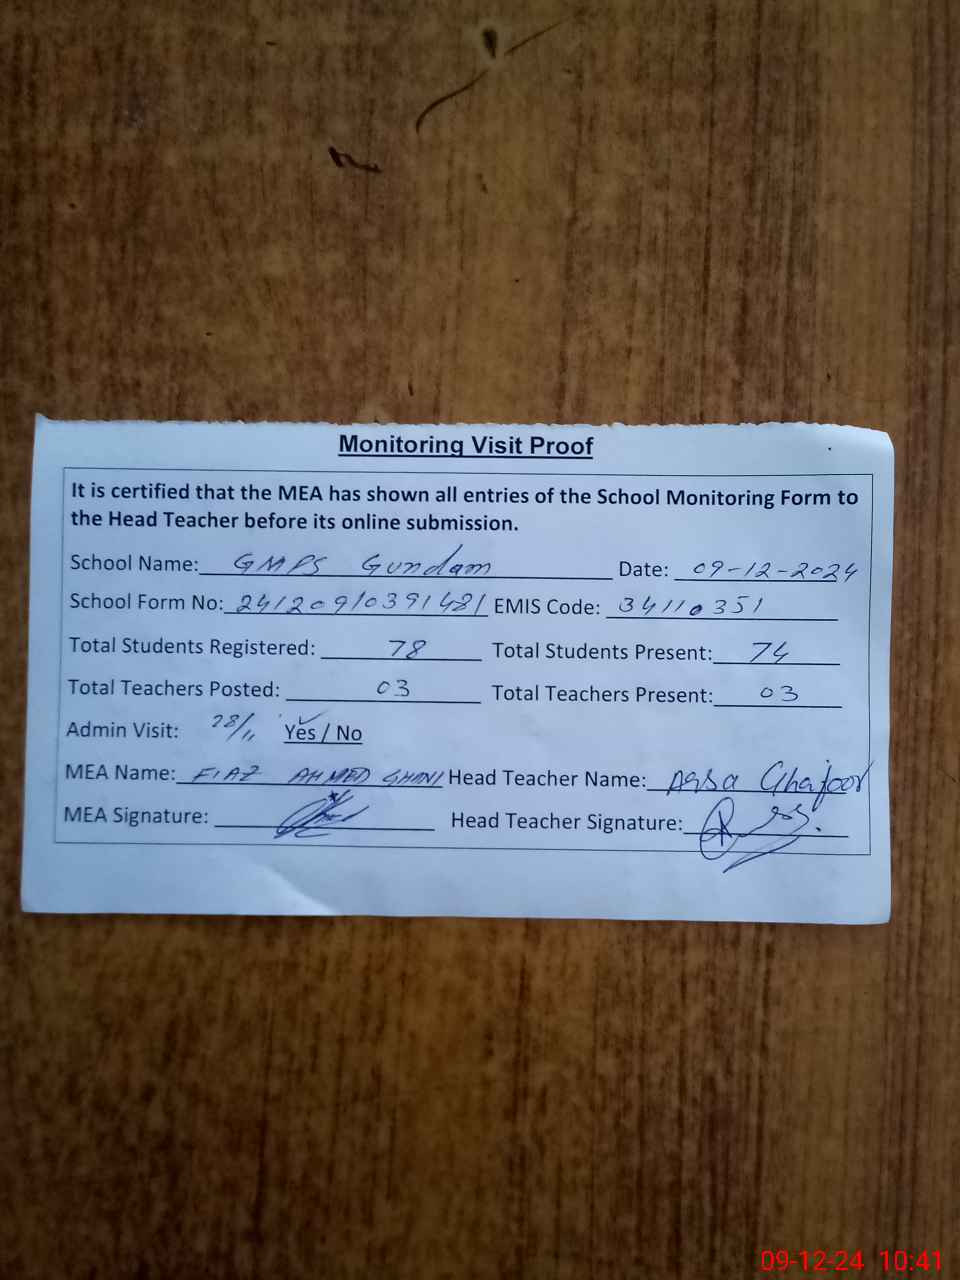 Monitoring Visit Proof
It is certified that the MEA has shown all entries of the School Monitoring Form to
the Head Teacher before its online submission.
School Name: GMPS Gundam Date: 09-12-2024
School Form No: 24120910391481 EMIS Code: 34110351
Total Students Registered: 78 Total Students Present: 74
Total Teachers Posted: 03 Total Teachers Present: 03
Admin Visit: 28/11 Yes / No
MEA Name: FIAZ AHMED GHANI Head Teacher Name: Aqsa Ghafoor
MEA Signature: Head Teacher Signature:
09-12-24 10:41